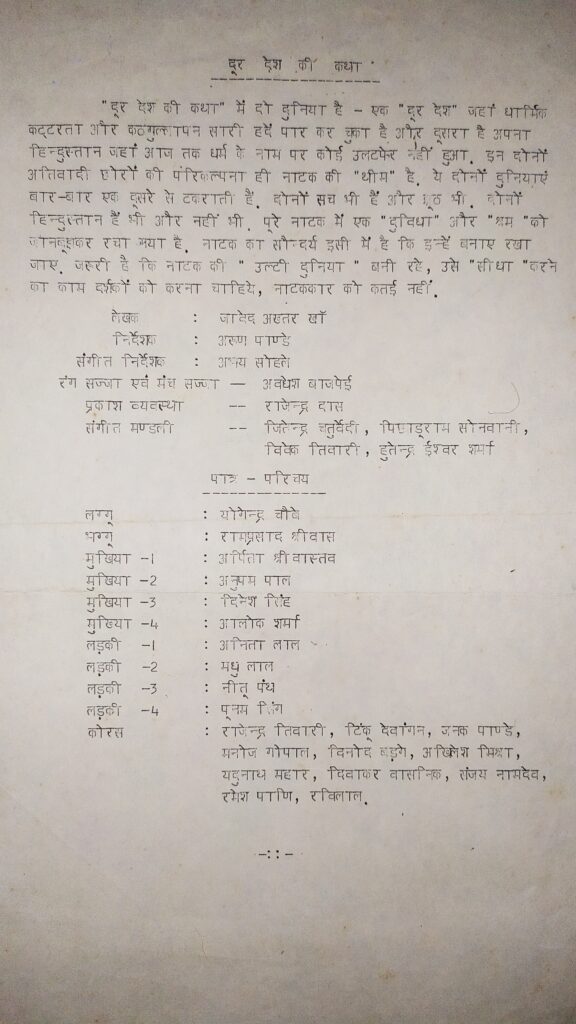 दूर देश की कथा
"दूर देश की कथा" में दो दुनिया है - एक "दूर देश" जहां धार्मिक
कट्टरता और कठमुल्लापन सारी हदें पार कर चुका है और दूसरा है अपना
हिन्दुस्तान जहां आज तक धर्म के नाम पर कोई उलटफेर नहीं हुआ. इन दोनों
अतिवादी छोरों की परिकल्पना ही नाटक की "थीम" है. ये दोनों दुनियाएं
बार-बार एक दूसरे से टकराती हैं. दोनों सच भी हैं और झूठ भी. दोनों
हिन्दुस्तान हैं भी और नहीं भी. पूरे नाटक में एक "दुविधा" और "भ्रम "को
जानबूझकर रचा गया है. नाटक का सौन्दर्य इसी में है कि इन्हें बनाए रखा
जाए. जरूरी है कि नाटक की " उल्टी दुनिया " बनी रहे, उसे "सीधा "करने
का काम दर्शकों को करना चाहिये, नाटककार को कतई नहीं.
लेखक : जावेद अख्तर खाँ
निर्देशक : अरूण पाण्डे
संगीत निर्देशक : अभय सोहले
रंग सज्जा एवं मंच सज्जा -- अवधेश बाजपेई
प्रकाश व्यवस्था -- राजेन्द्र दास
संगीत मण्डली -- जितेन्द्र चतुर्वेदी, सोनवानी,
विवेक तिवारी, हुतेन्द्र ईश्वर शर्मा
पात्र - परिचय
लग्गू : योगेन्द्र चौबे
भग्गू : रामप्रसाद श्रीवास
मुखिया -1 : अर्पिता श्रीवास्तव
मुखिया -2 : अनुपम पाल
मुखिया -3 : दिनेश सिंह
मुखिया -4 : आलोक शर्मा
लड़की -1 : अनिता लाल
लड़की -2 : मधु लाल
लड़की -3 : नीतू पंथ
लड़की -4 : पूनम सिंग
कोरस : राजेन्द्र तिवारी, टिंकू देवांगन, जनक पाण्डे,
मनोज गोपाल, विनोद बड़गे, अखिलेश मिश्रा,
यदुनाथ महार, दिवाकर वासनिक, संजय नामदेव,
रमेश पाणि, रविलाल.
-::-